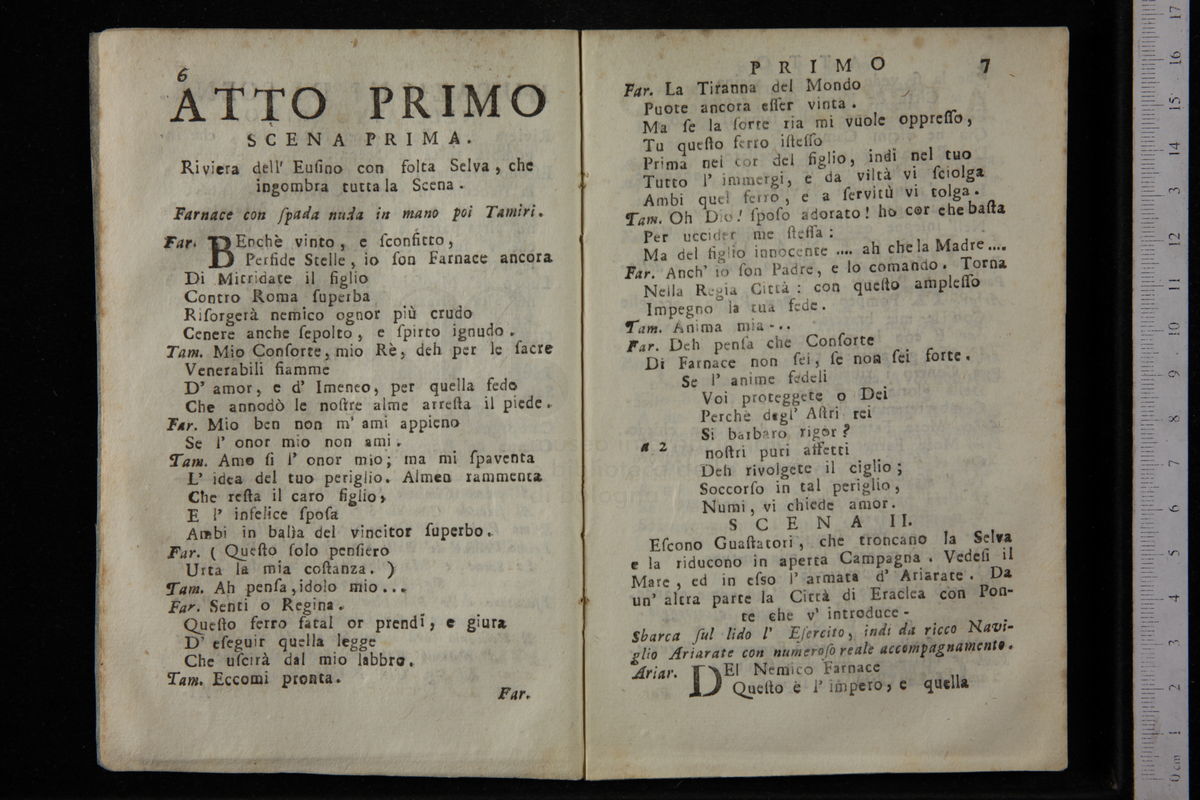 6
ATTO PRIMO
SCENA PRIMA.
Riviera dell' Eusino con folta Selva, che
ingombra tutta la Scena.
Farnace con ſpada nuda in mano poi Tamiri.
Far. BEnchè vinto, e ſconfitto,
Perfide Stelle, io ſon Farnace ancora
Di Mitridate il figlio
Contro Roma ſuperba
Riſorgerà nemico ognor più crudo
Cenere anche ſepolto, e ſpirto ignudo.
Tam. Mio Conſorte, mio Rè, deh per le ſacre
Venerabili fiamme
D' amor, e d' Imeneo, per quella fede
Che annodò le noſtre alme arreſta il piede.
Far. Mio ben non m' ami appieno
Se l' onor mio non ami.
Tam. Amo ſi l' onor mio; ma mi ſpaventa
L' idea del tuo periglio. Almen rammenta
Che reſta il caro figlio,
E l' infelice ſpoſa
Ambi in balìa del vincitor ſuperbo.
Far. ( Queſto ſolo penſiero
Urta la mia coſtanza. )
Tam. Ah penſa, idolo mio...
Far. Senti o Regina.
Queſto ferro fatal or prendi, e giura
D' eſeguir quella legge
Che uſcirà dal mio labbro.
Tam. Eccomi pronta.
Far.
PRIMO 7
Far. La Tiranna del Mondo
Puote ancora eſſer vinta.
Ma ſe la ſorte ria mi vuole oppreſſo,
Tu queſto ferro iſteſſo
Prima nel cor del figlio, indi nel tuo
Tutto l' immergi, e da viltà vi ſciolga
Ambi quel ferro, e a ſervitù vi tolga.
Tam. Oh Dio! ſpoſo adorato! ho cor che baſta
Per uccider me ſteſſa:
Ma del figlio innocente .... ah che la Madre ....
Far. Anch' io ſon Padre, e lo comando. Torna
Nella Regia Città: con queſto ampleſſo
Impegno la tua fede.
Tam. Anima mia-..
Far. Deh penſa che Conſorte
Di Farnace non ſei, ſe non ſei forte.
Se l' anime fedeli
Voi proteggete o Dei
Perchè degl' Aſtri rei
Si barbaro rigor?
a 2 noſtri puri affetti
Deh rivolgete il ciglio;
Soccorſo in tal periglio,
Numi, vi chiede amor.
SCENA II.
Eſcono Guaſtatori, che troncano la Selva
e la riducono in aperta Campagna. Vedeſi il
Mare, ed in eſso l' armata d' Ariarate. Da
un' altra parte la Città di Eraclea con Pon-
te che v' introduce-
Sbarca ſul lido l' Eſercito, indi da ricco Navi-
glio Ariarate con numeroſo reale accompagnamento.
Ariar. DEl Nemico Farnace
Queſto è l' impero, e quella